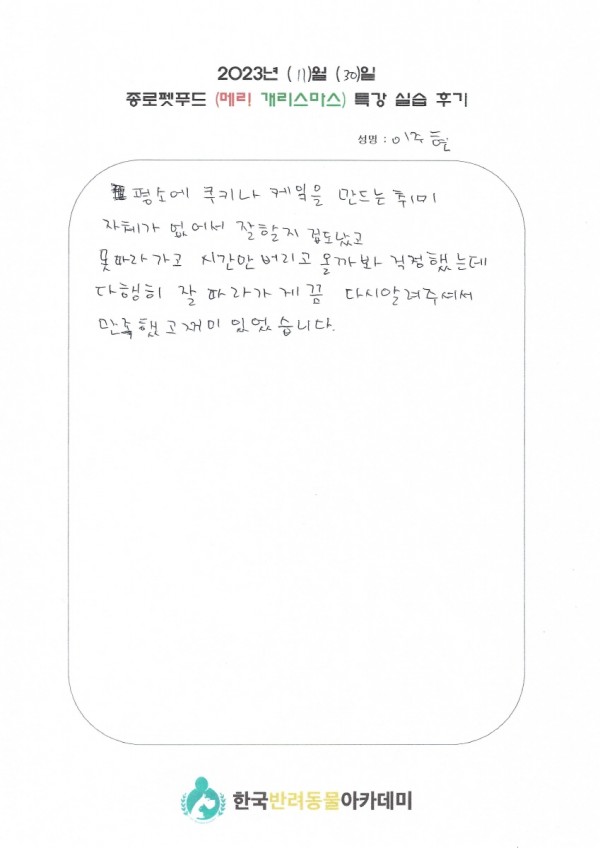 2023년 (11)월 (30)일
종로펫푸드 (메리 개리스마스) 특강 실습 후기
성명 : 이주헌
평소에 쿠키나 케잌을 만드는 취미
자체가 없어서 잘할지 겁도났고
못따라가고 시간만버리고 올까봐 걱정했는데
다행히 잘 따라가게끔 다시알려주셔서
만족했고 재미있었습니다.
한국반려동물아카데미